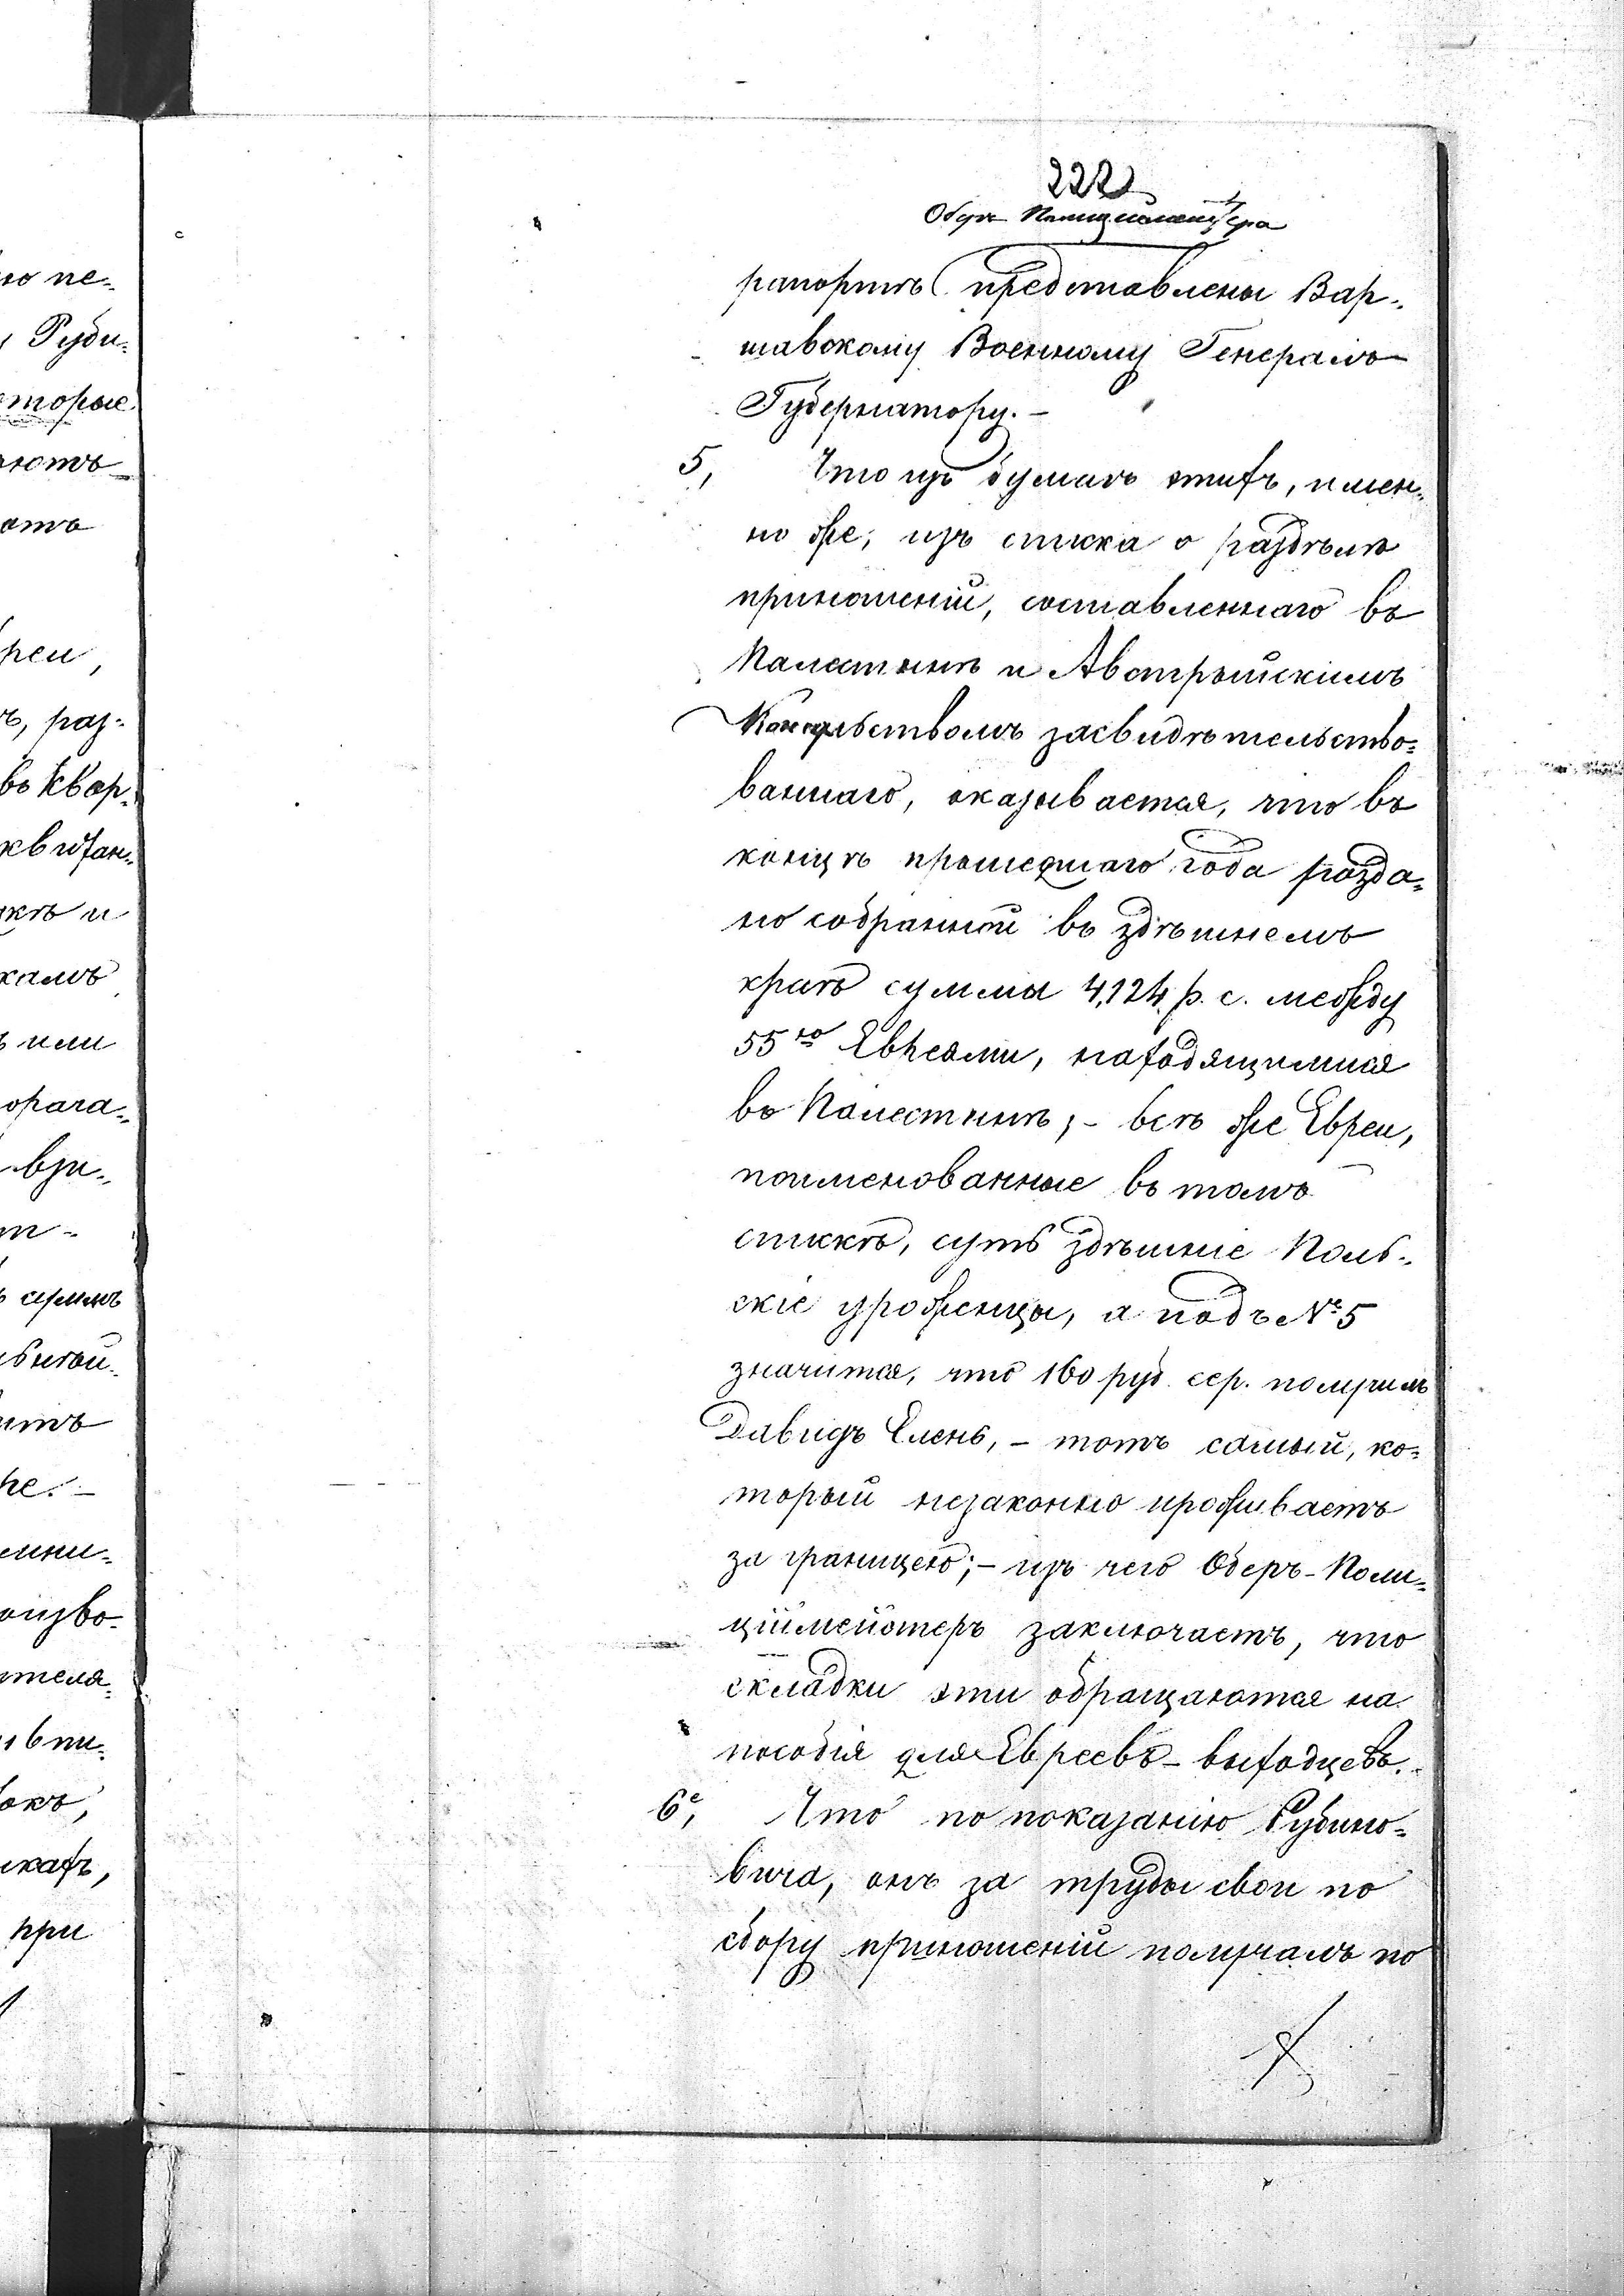 222
Оберъ Полицiймейстера
рапортъ представлены Вар-
шавскому Военному Генералъ
Губернатору. -
5, Что изъ бумагъ этихъ, имен-
но же, изъ списка о раздѣлѣ
приношенiй, составленнаго въ
Палестинѣ и Австрiйскимъ
Консульствомъ засвидѣтельство=
ваннаго, оказывается, что въ
концѣ прошедшаго года разда=
но собранной въ здѣшнемъ
краѣ суммы 4,124 р. с. между
55ю Евреями, находящимися
въ Палестинѣ; - всѣ же Евреи,
поименованные въ томъ
спискѣ, суть здѣшнiе Поль-
скiе уроженцы, а подъ № 5
значится, что 160 руб. сер. получилъ
Давидъ Елень, - тотъ самый, ко=
торый незаконно проживаетъ
за границею; - изъ чего Оберъ-Поли=
цiймейстеръ заключаетъ, что
складки эти обращаются на
пособiя для Евреевъ-выходцевъ.
6е, Что по показанiю Рубино=
вича, онъ за труды свои по
сбору приношенiй получалъ по
ю пе-
Руби-
которые
раз-
въ Квар-
квитан-
кѣ и
или
взи-
суммъ
при